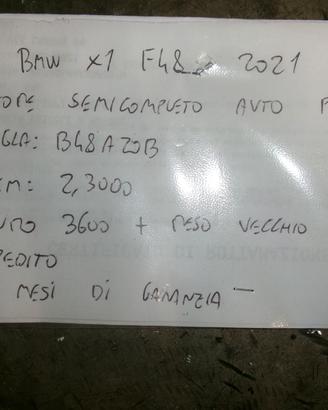 BMW X1 F48 2021
TORE SEMICOMPLETO AVTO P
GLA: B48A20B
KM: 2,3000
URO 3600 + RESO VECCHIO
PEDITO
MESI DI GARANZIA -